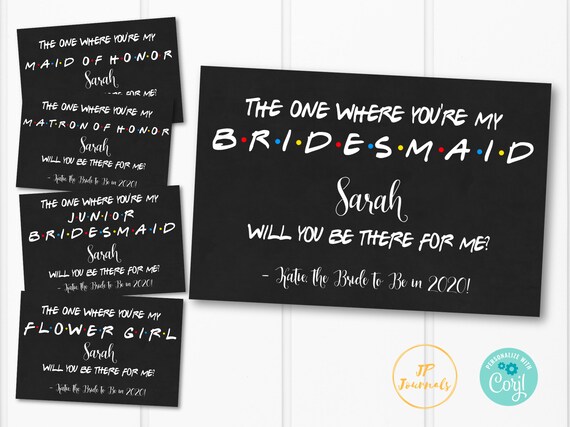 THE ONE WHERE YOU'RE MY
MAID OF HONOR
Sarah
BE THERE FOR ME?
THE ONE WHERE YOU'RE MY
MATRON OF HONOR
Sarah
WILL YOU BE THERE FOR ME?
- Katie, the Bride to Be in 2020!
THE ONE WHERE YOU'RE MY
JUNIOR
BRIDESMAID
Sarah
WILL YOU BE THERE FOR ME?
- Katie, the Bride to Be in 2020!
THE ONE WHERE YOU'RE MY
FLOWER GIRL
Sarah
WILL YOU BE THERE FOR ME?
- Katie, the Bride to Be in 2020!
THE ONE WHERE YOU'RE MY
B•R•I•D•E•S•M•A•I•D
Sarah
WILL YOU BE THERE FOR ME?
- Katie, the Bride to Be in 2020!
JP
Journals
PERSONALIZE WITH
Corjl